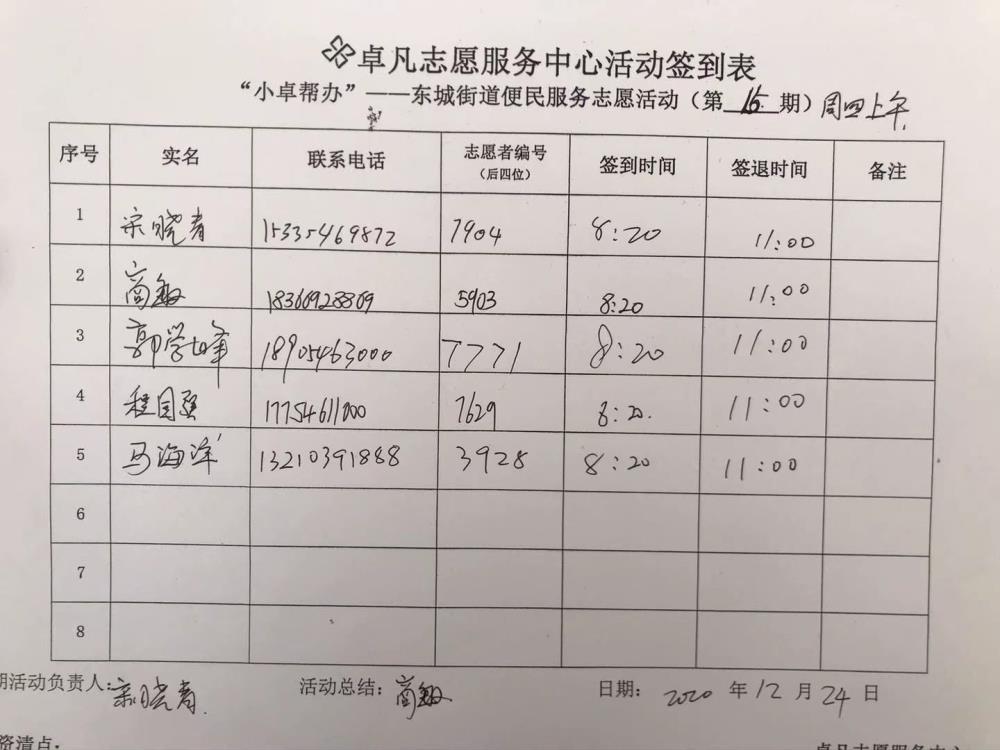 卓凡志愿服务中心活动签到表
“小卓帮办”——东城街道便民服务志愿活动（第 16 期）周四上午
序号 实名 联系电话 志愿者编号（后四位） 签到时间 签退时间 备注
1 宗晓青 15335469872 7904 8:20 11:00
2 商敏 18366928869 5903 8:20 11:00
3 郭学峰 18905463000 7771 8:20 11:00
4 程国强 17754611000 7629 8:20. 11:00
5 马海洋 13210391888 3928 8:20 11:00
6
7
8
期活动负责人：宗晓青 活动总结：商敏 日期：2020 年 12 月 24 日
资清点： 卓凡志愿服务中心